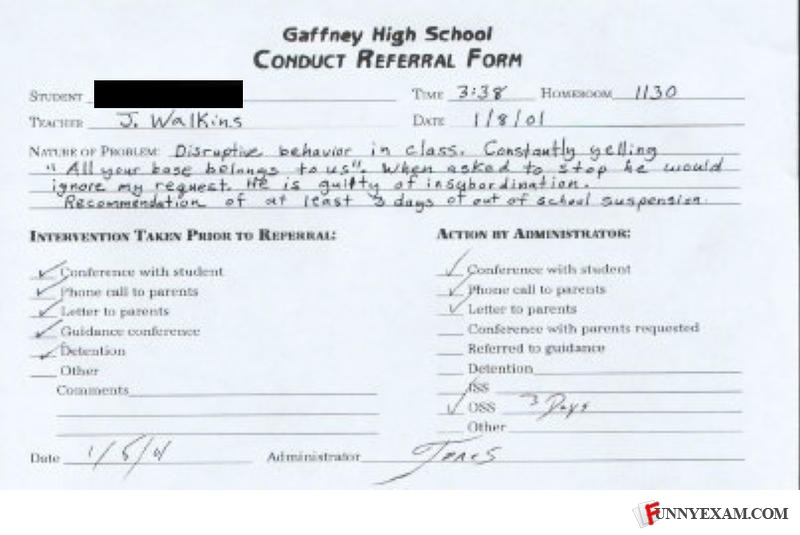 Gaffney High School
CONDUCT REFERRAL FORM
STUDENT TIME 3:38 HOMEROOM 1130
TEACHER J. Walkins DATE 1/8/01
NATURE OF PROBLEM: Disruptive behavior in class. Constantly yelling
"All your base belongs to us". When asked to stop he would
ignore my request. He is guilty of insubordination.
Recommendation of at least 3 days of out of school suspension.
INTERVENTION TAKEN PRIOR TO REFERRAL: ACTION BY ADMINISTRATOR:
✓ Conference with student ✓ Conference with student
✓ Phone call to parents ✓ Phone call to parents
✓ Letter to parents ✓ Letter to parents
✓ Guidance conference Conference with parents requested
✓ Detention Referred to guidance
Other Detention
Comments ISS
✓ OSS 3 Days
Other
Date Administrator Jones
FUNNYEXAM.COM